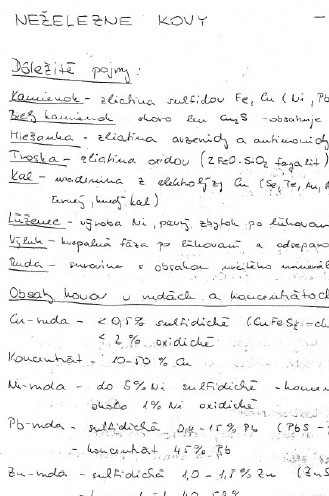 NEŽELEZNE KOVY
Dôležité pojmy:
Kamienok - zliatina sulfidov Fe, Cu (Ni, Pb
Biely kamienok skoro len Cu₂S - obsahuje
Miešanka - zliatina arzenidy a antimonidy
Troska - zliatina oxidov (2FeO.SiO₂ fayalit)
Kal - usadenina z elektrolýzy Cu (Se, Te, Au,
čierny, hnedý kal)
Lúženec - výroba Ni, pevný zbytok po lúhovaní
Výluh - kvapalná fáza po lúhovaní a odseparo
Ruda - surovina s obsahom určitého minerál
Obsahy kovov v rudách a koncentrátoch
Cu-ruda - < 0,5% sulfidické (CuFeS₂ = ch
< 2% oxidické
Koncentrát - 10-50% Cu
Ni-ruda - do 5% Ni sulfidické - koncen
okolo 1% Ni oxidické
Pb-ruda - sulfidická 0,4-15% Pb (PbS -
- koncentrát 45% Pb
Zn-ruda - sulfidická 1,0-1,5% Zn (ZnS